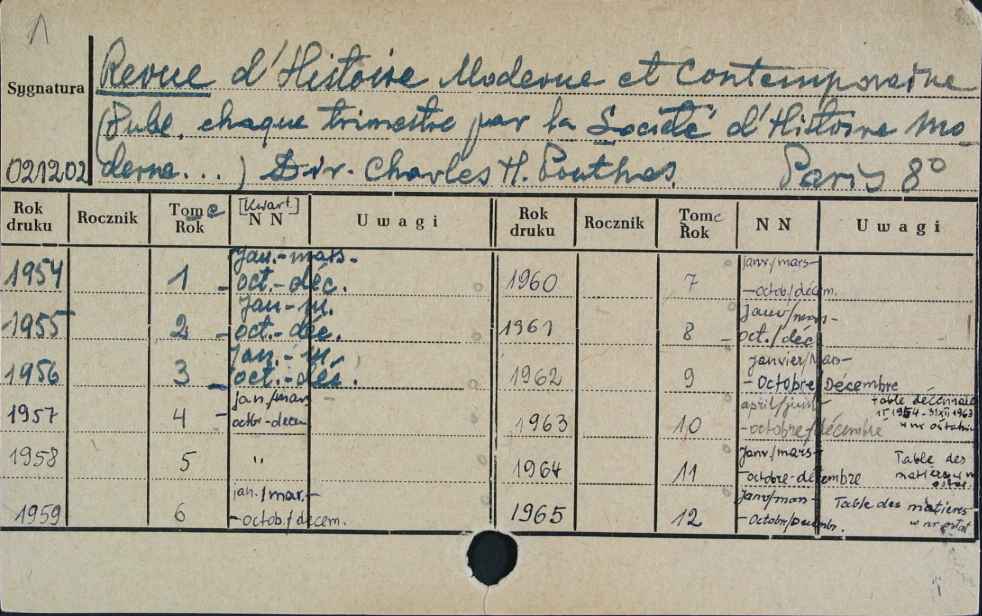 1
Revue d'Histoire Moderne et Contemporaine
Sygnatura
(Publ. chaque trimestre par la Société d'Histoire Mo
021202 derne...) Dir. Charles H. Pouthas. Paris 8º
Rok druku Rocznik Tome Rok [Kwart.] N N Uwagi Rok druku Rocznik Tome Rok N N Uwagi
1954 1 Jan.-mars- - oct.-déc. 1960 7 janv/mars- -octob/décem.
1955 2 Jan-m. - oct.-déc. 1961 8 Janv/mars- - oct./déc
1956 3 Jan.-m. - oct.-déc. 1962 9 janvier/Mars- - Octobre/Décembre
1957 4 jan/mars - octbr-décem 1963 10 april/juin- -octobre/décembre Table décennale 1954-31 XII 1963 w nr ostatnim
1958 5 " 1964 11 janv/mars- -octobre-décembre Table des matières w
1959 6 jan./mar.- -octob./décem. 1965 12 janv/mars- -Octobr/Decembr. Table des matières w nr ostat